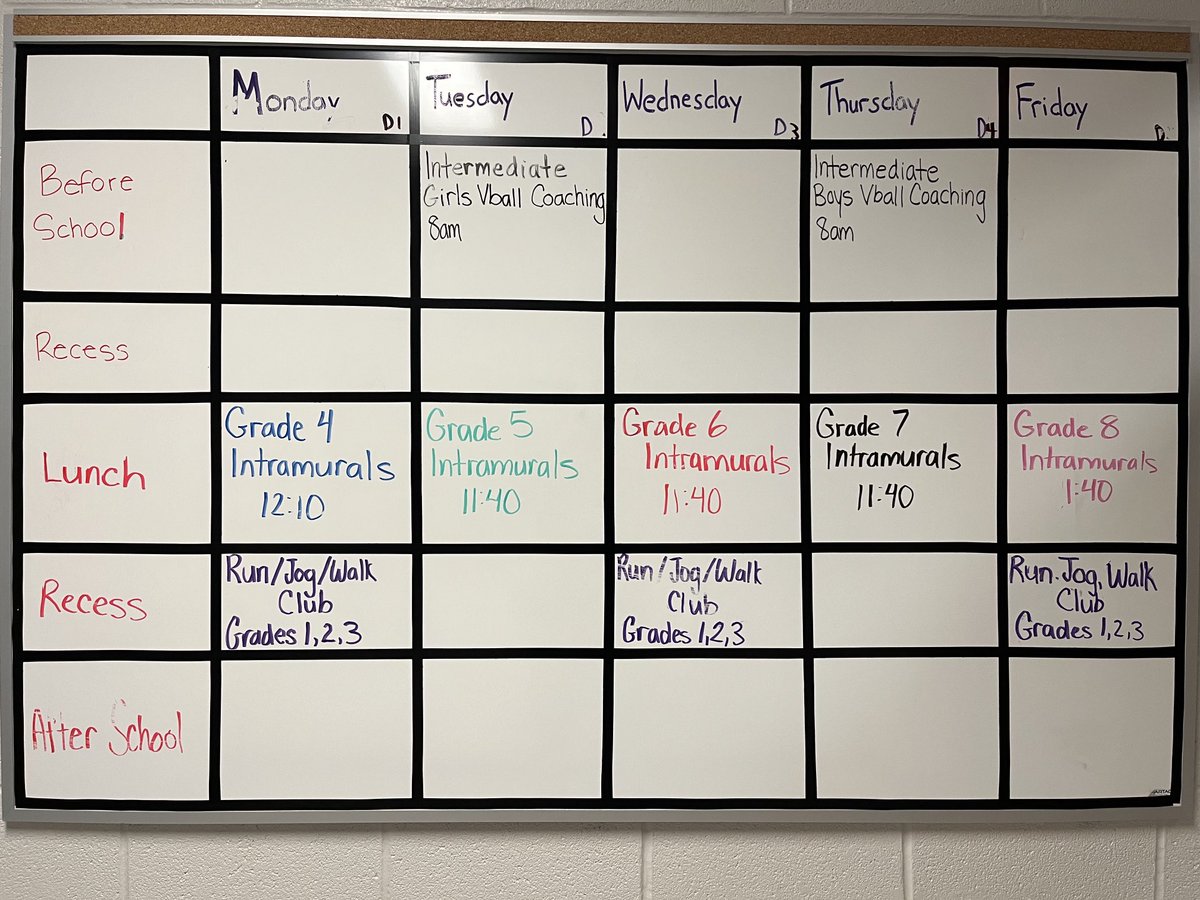 Monday
D1
Tuesday
D
Wednesday
D3
Thursday
D4
Friday
D
Before
School
Intermediate
Girls Vball Coaching
8am
Intermediate
Boys Vball Coaching
8am
Recess
Lunch
Grade 4
Intramurals
12:10
Grade 5
Intramurals
11:40
Grade 6
Intramurals
11:40
Grade 7
Intramurals
11:40
Grade 8
Intramurals
1:40
Recess
Run/Jog/Walk
Club
Grades 1,2,3
Run/Jog/Walk
Club
Grades 1,2,3
Run.Jog,Walk
Club
Grades 1,2,3
After School